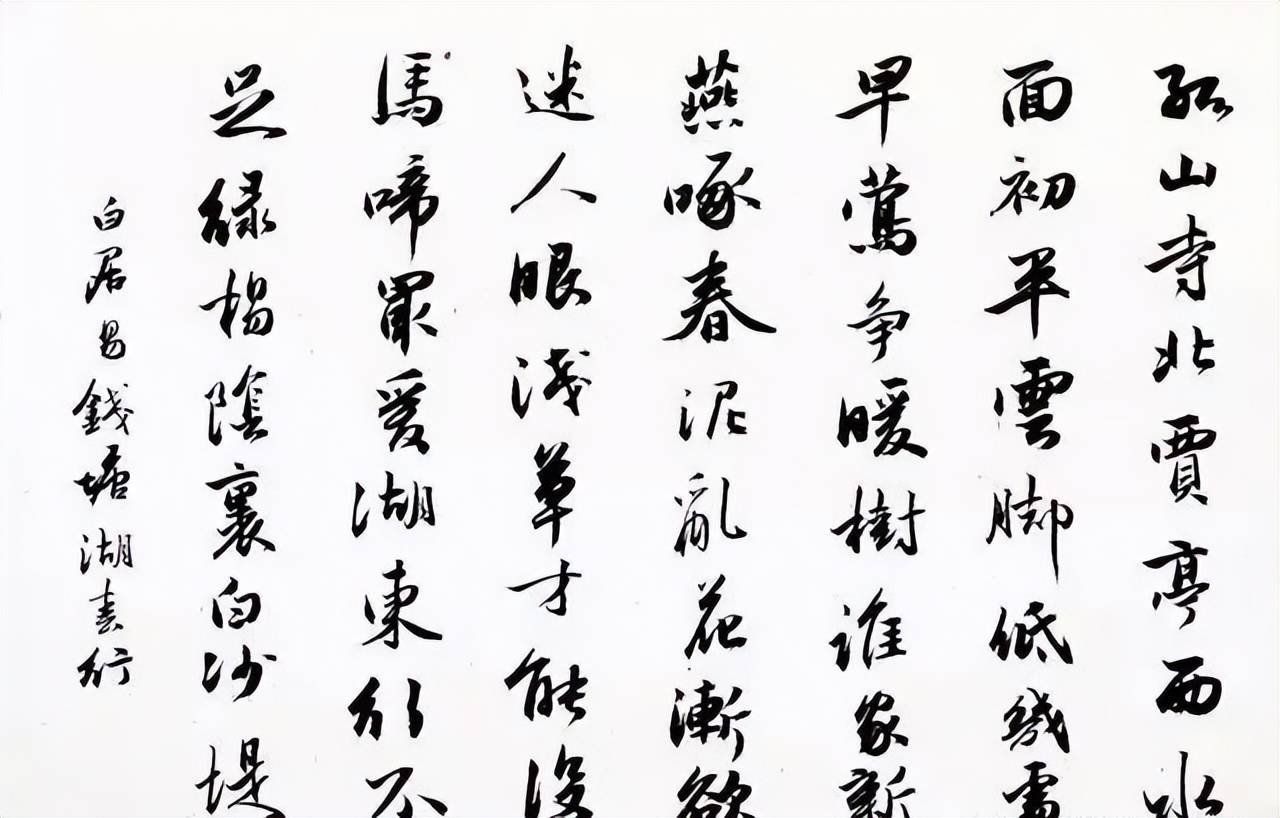 孤山寺北賈亭西水
面初平雲脚低幾處
早鶯争暖樹誰家新
燕啄春泥亂花漸欲
迷人眼淺草才能没
馬啼最愛湖東行不
足綠楊陰裏白沙堤
白居易錢塘湖春行